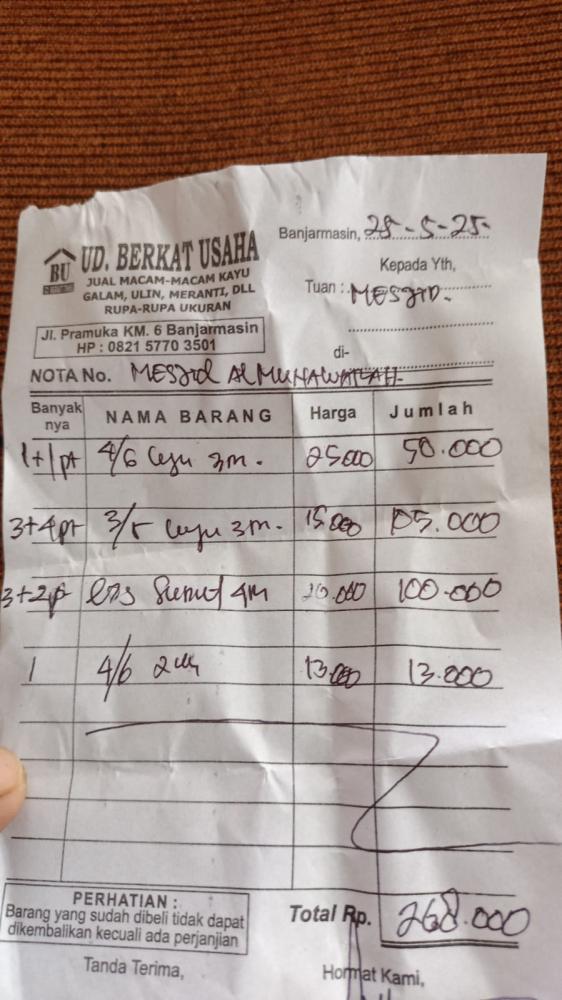 UD. BERKAT USAHA
BU
JUAL MACAM-MACAM KAYU
GALAM, ULIN, MERANTI, DLL
RUPA-RUPA UKURAN
Jl. Pramuka KM. 6 Banjarmasin
HP : 0821 5770 3501
Banjarmasin, 25-5-25
Kepada Yth,
Tuan : MESJID.
di-
NOTA No. MESJID ALMUNAWARAH
Banyaknya NAMA BARANG Harga Jumlah
1+1pt 4/6 3m. 25000 50.000
3+4pt 3/5 3m. 15.000 105.000
3+2p 4M 20.000 100.000
1 4/6 13.000 13.000
Total Rp. 268.000
PERHATIAN :
Barang yang sudah dibeli tidak dapat
dikembalikan kecuali ada perjanjian
Tanda Terima,
Hormat Kami,